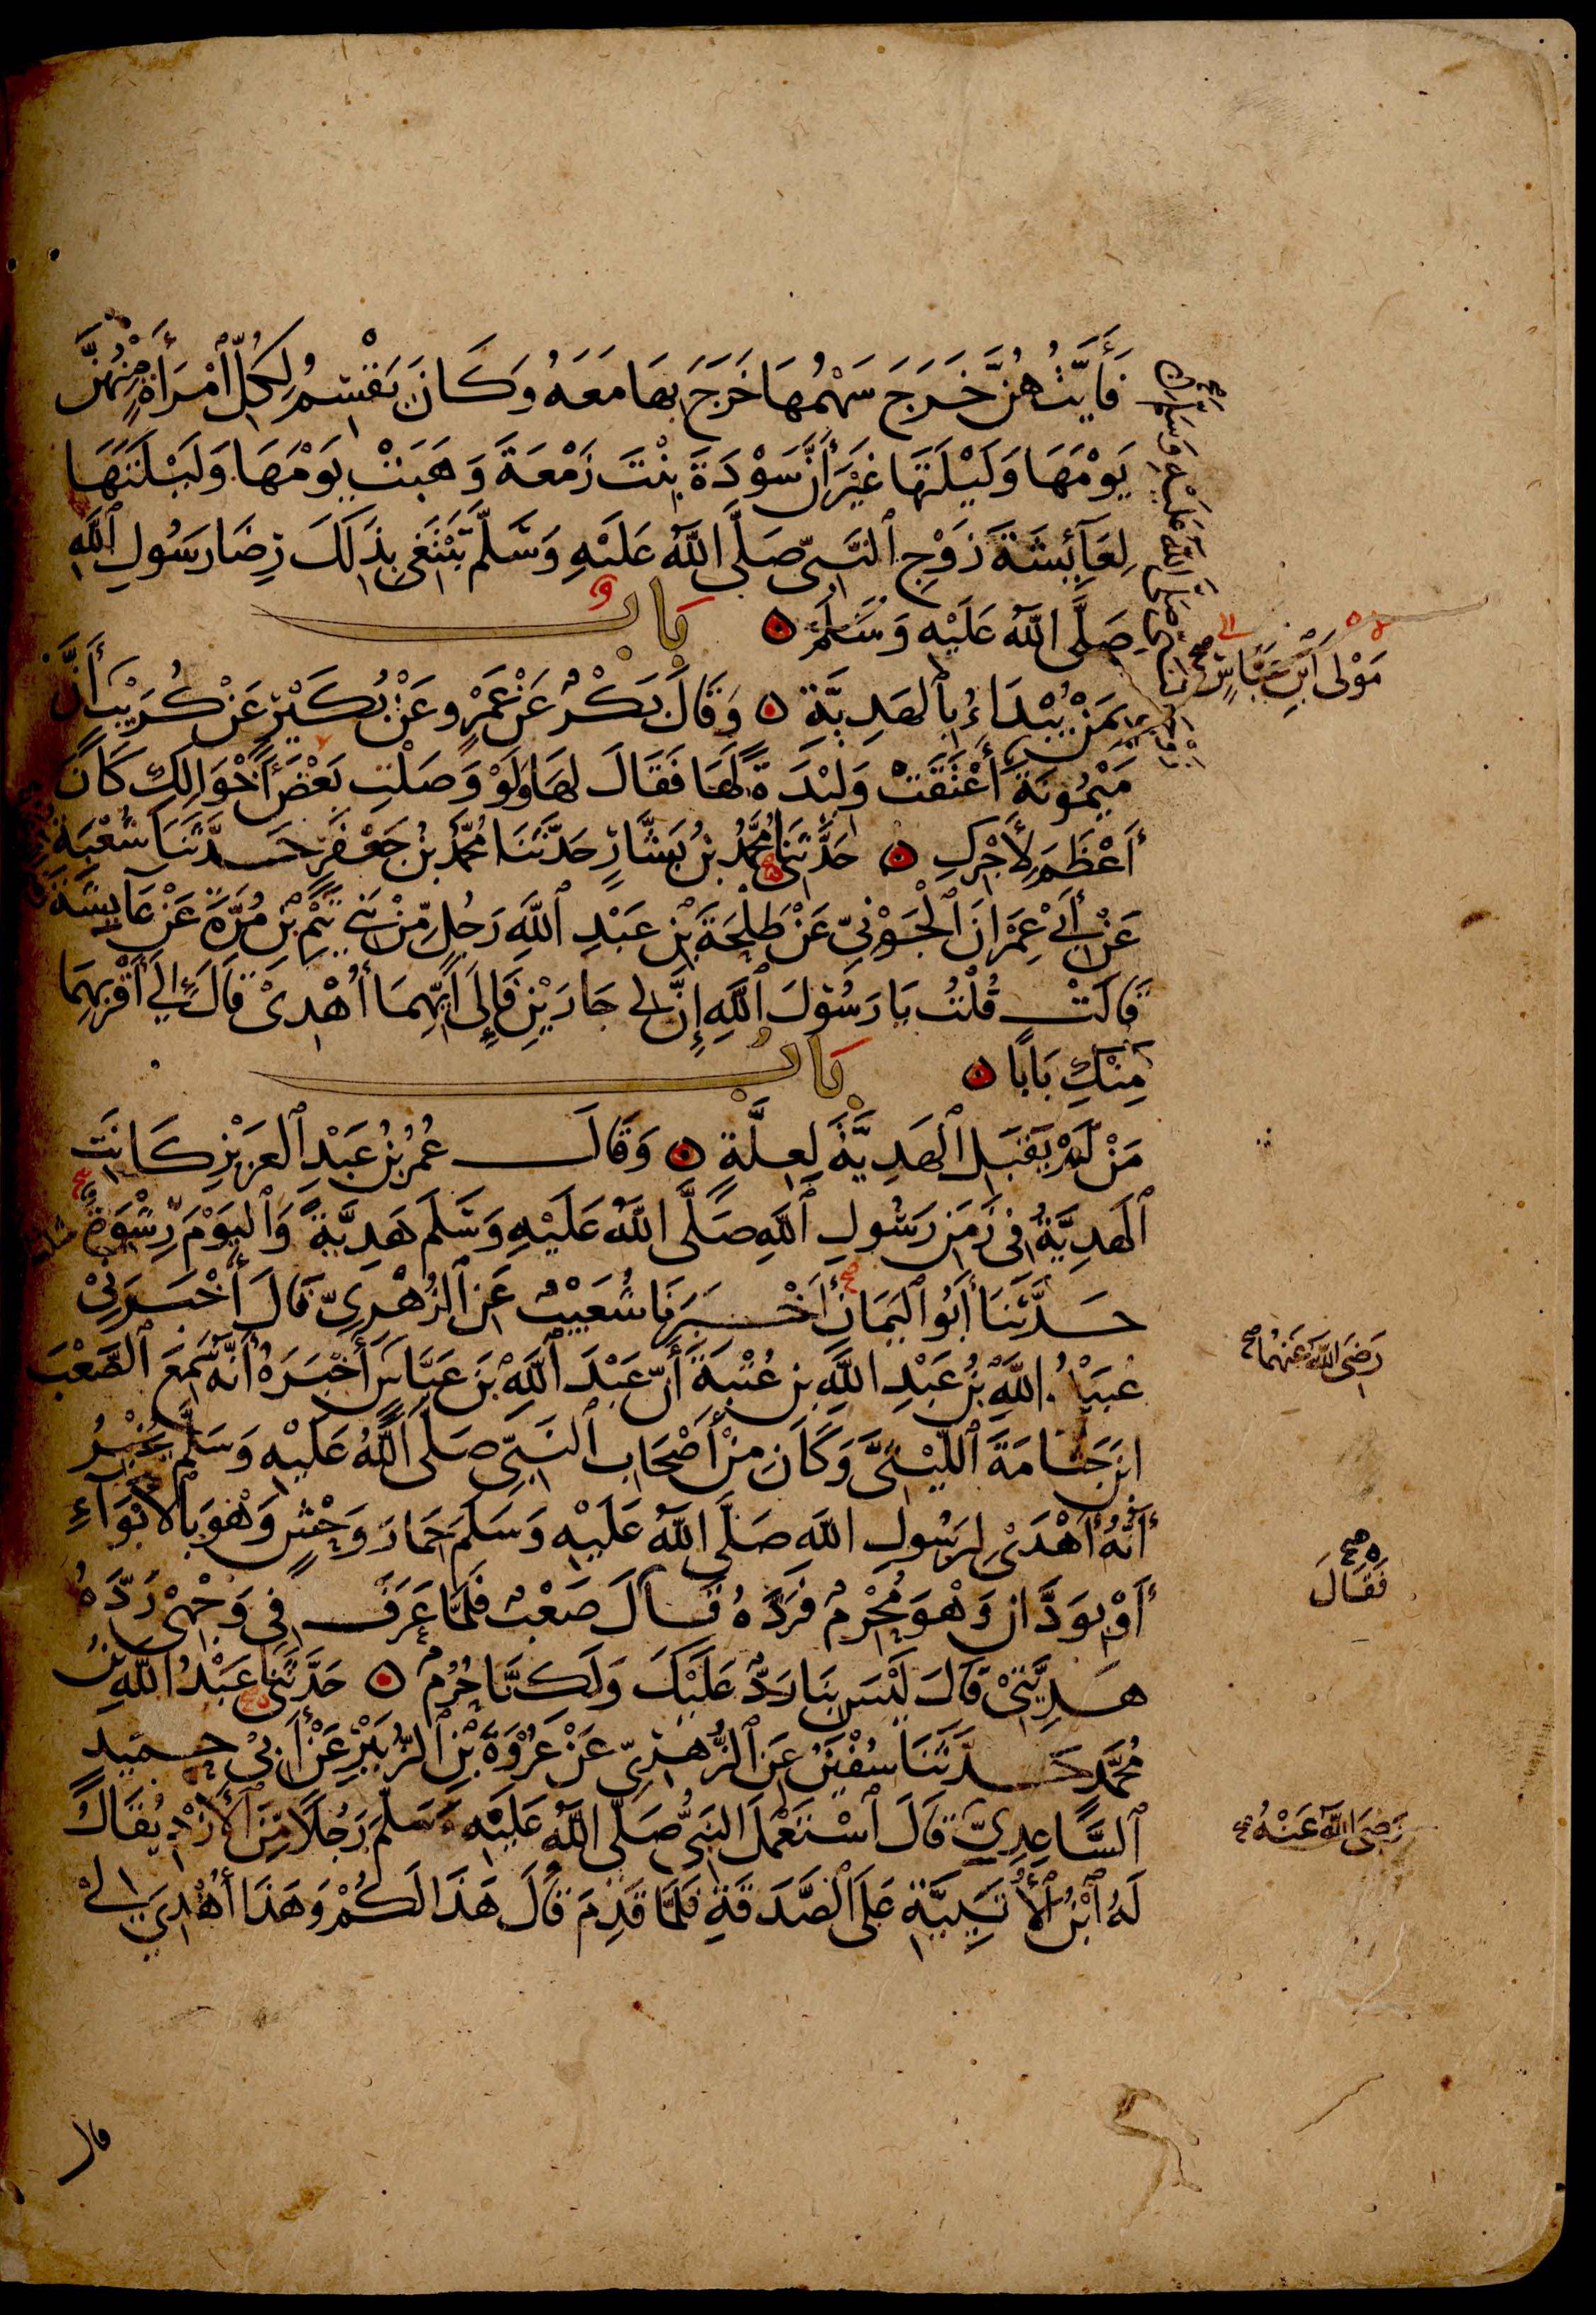 فَأَيَّتُهُنَّ خَرَجَ سَهْمُهَا خَرَجَ بِهَا مَعَهُ وَكَانَ يَقْسِمُ لِكُلِّ ٱمْرَأَةٍ مِنْهُنَّ
يَوْمَهَا وَلَيْلَتَهَا غَيْرَ أَنَّ سَوْدَةَ بِنْتَ زَمْعَةَ وَهَبَتْ يَوْمَهَا وَلَيْلَتَهَا
لِعَآئِشَةَ زَوْجِ ٱلنَّبِيِّ صَلَّى اللَّهُ عَلَيْهِ وَسَلَّمَ تَبْتَغِى بِذَلِكَ رِضَا رَسُولِ ٱللَّهِ
صَلَّى اللَّهُ عَلَيْهِ وَسَلَّمَ ۞ بَابُ
بِمَنْ يُبْدَاءُ بِٱلْهَدِيَّةِ ۞ وَقَالَ بَكْرٌ عَنْ عَمْرٍو عَنْ بُكَيْرٍ عَنْ كُرَيْبٍ أَنَّ
مَوْلَى ٱبْنِ عَبَّاسٍ صح
مَيْمُونَةَ أَعْتَقَتْ وَلِيْدَةً لَهَا فَقَالَ لَهَا وَلَوْ وَصَلْتِ بَعْضَ أَخْوَالِكِ كَانَ
أَعْظَمَ لِأَجْرِكِ ۞ حَدَّثَنِي مُحَمَّدُ بْنُ بَشَّارٍ حَدَّثَنَا مُحَمَّدُ بْنُ جَعْفَرٍ حَدَّثَنَا شُعْبَةُ
عَنْ أَبِي عِمْرَانَ ٱلْجَوْنِيِّ عَنْ طَلْحَةَ بْنِ عَبْدِ ٱللَّهِ رَجُلٍ مِّنْ بَنِي تَيْمِ بْنِ مُرَّةَ عَنْ عَايِشَةَ
قَالَتْ قُلْتُ يَا رَسُوْلَ ٱللَّهِ إِنَّ لِي جَارَيْنِ فَإِلَى أَيِّهِمَا أُهْدِىْ قَالَ إِلَي أَقْرَبِهِمَا
مِنْكِ بَابًا ۞ بَابُ
مَنْ لَمْ يَقْبَلِ ٱلْهَدِيَّةَ لِعِلَّةٍ ۞ وَقَالَ عُمَرُ بْنُ عَبْدِ ٱلْعَزِيْزِ كَانَتِ
ٱلْهَدِيَّةُ فِى زَمَنِ رَسُولِ ٱللَّهِ صَلَّى اللَّهُ عَلَيْهِ وَسَلَّمَ هَدِيَّةً وَٱلْيَوْمَ رِشْوَةٌ
حَدَّثَنَا أَبُو ٱلْيَمَانِ أَخْبَرَنَا شُعَيْبٌ عَنِ ٱلزُّهْرِيِّ قَالَ أَخْبَرَنِيْ
عُبَيْدُ اللَّهِ بْنُ عَبْدِ اللَّهِ بْنِ عُتْبَةَ أَنَّ عَبْدَ ٱللَّهِ بْنَ عَبَّاسٍ أَخْبَرَهُ أَنَّهُ سَمِعَ ٱلصَّعْبَ
رَضِىَ اللَّهُ عَنْهُمَا صح
ابْنَ جَثَّامَةَ ٱللَّيْثِىَّ وَكَانَ مِنْ أَصْحَابِ ٱلنَّبِيِّ صَلَّى اللَّهُ عَلَيْهِ وَسَلَّمَ يُخْبِرُ
أَنَّهُ أَهْدَىْ لِرَسُولِ اللَّهِ صَلَّى اللَّهُ عَلَيْهِ وَسَلَّمَ حِمَارَ وَحْشٍ وَهْوَ بِالْأَبْوَآءِ
أَوْ بِوَدَّانَ وَهْوَ مُحْرِمٌ فَرَدَّهُ قَالَ صَعْبٌ فَلَمَّا عَرَفَ فِي وَجْهِىْ رَدَّهُ
صح فَقَالَ
هَدِيَّتِىْ قَالَ لَيْسَ بِنَا رَدٌّ عَلَيْكَ وَلَكِنَّا حُرُمٌ ۞ حَدَّثَنِي عَبْدُ اللَّهِ بْنُ
مُحَمَّدٍ حَدَّثَنَا سُفْيَنُ عَنِ ٱلزُّهْرِيِّ عَنْ عُرْوَةَ بْنِ ٱلزُّبَيْرِ عَنْ أَبِيْ حُمَيْدٍ
ٱلسَّاعِدِيِّ قَالَ ٱسْتَعْمَلَ النَّبِيُّ صَلَّى اللَّهُ عَلَيْهِ وَسَلَّمَ رَجُلًا مِّنَ ٱلْأَزْدِ يُقَالُ
رَضِىَ اللَّهُ عَنْهُ صح
لَهُ ٱبْنُ ٱلْأُتَبِيَّةِ عَلَى ٱلصَّدَقَةِ فَلَمَّا قَدِمَ قَالَ هَذَا لَكُمْ وَهَذَا أُهْدِيَ لِيْ
قال